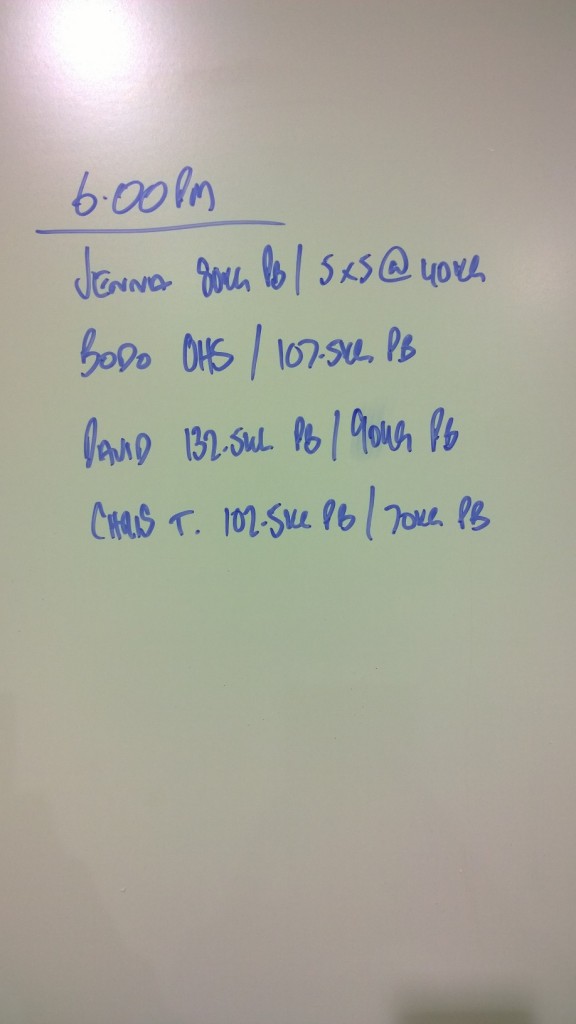 6.00PM
JENNA 80KG PB / 5x5 @ 40KG
BODO OHS / 107.5KG PB
DAVID 132.5KG PB / 90KG PB
CHRIS T. 102.5KG PB / 70KG PB